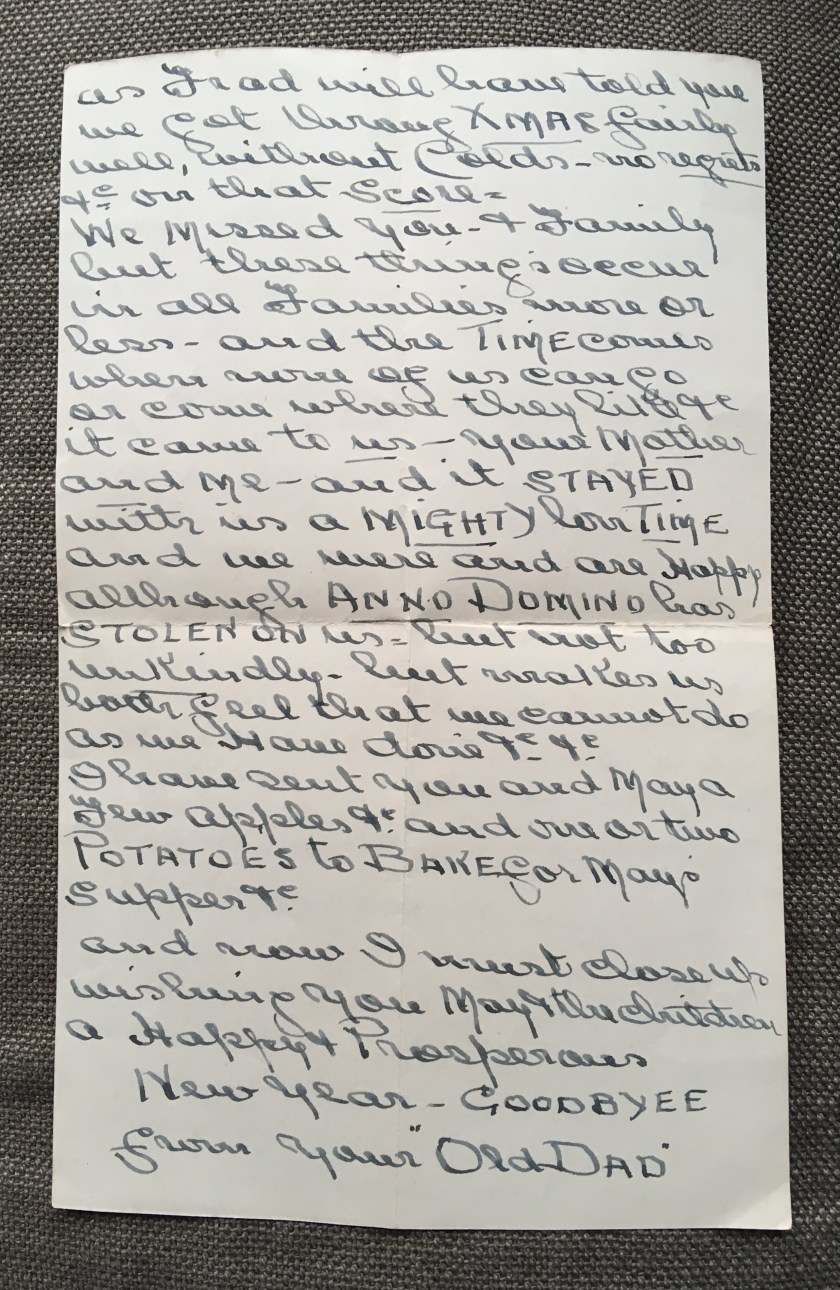 as Frad will have told you
we got throug XMAS fairly
well, without Colds - no regrets
&c on that Score =
We Missed you - & Family
but these thing's occur
in all Families more or
less - and the TIME comes
when none of us can go
or come where they like &c
it came to us - your Mother
and Me - and it STAYED
with us a MIGHTY lon TIME
and we were and are Happy
although ANNO DOMINO has
STOLEN ON us = but not too
unKindly - but makes us
both feel that we cannot do
as we Have done &c &c
I have sent you and May a
Few apples &c and one or two
POTATOES to BAKE for May's
Supper &c
and now I must close up
wishing you May & the children
a Happy & Prosperous
New Year - GOODBYEE
from your "Old DAD"